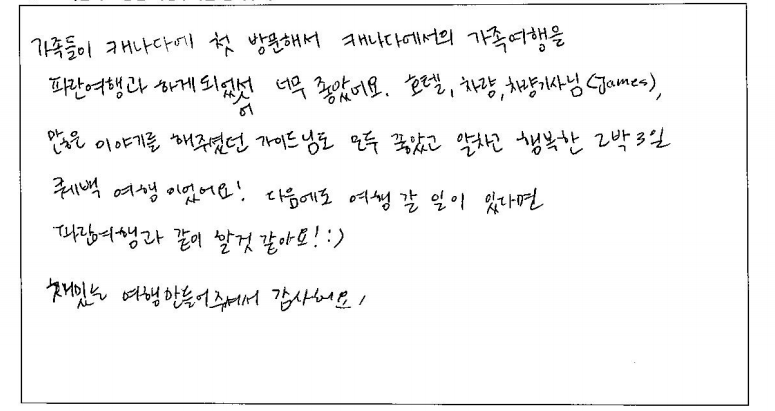 가족들이 캐나다에 첫 방문해서 캐나다에서의 가족여행을
파란여행과 하게되었어 너무 좋았어요. 호텔, 차량, 차량기사님(James),
많은 이야기를 해주셨던 가이드님도 모두 좋았고 알차고 행복한 2박3일
퀘백 여행이었어요! 다음에도 여행 갈 일이 있다면
파란여행과 같이 할것 같아요! :)
재밌는 여행만들어주셔서 감사해요,